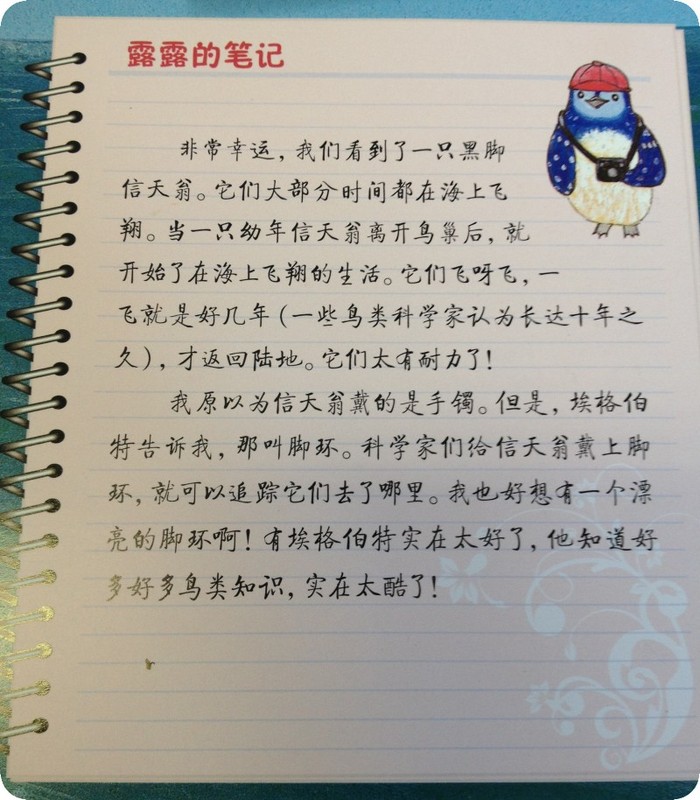 露露的笔记
非常幸运，我们看到了一只黑脚
信天翁。它们大部分时间都在海上飞
翔。当一只幼年信天翁离开鸟巢后，就
开始了在海上飞翔的生活。它们飞呀飞，一
飞就是好几年（一些鸟类科学家认为长达十年之
久），才返回陆地。它们太有耐力了！
我原以为信天翁戴的是手镯。但是，埃格伯
特告诉我，那叫脚环。科学家们给信天翁戴上脚
环，就可以追踪它们去了哪里。我也好想有一个漂
亮的脚环啊！有埃格伯特实在太好了，他知道好
多好多鸟类知识，实在太酷了！